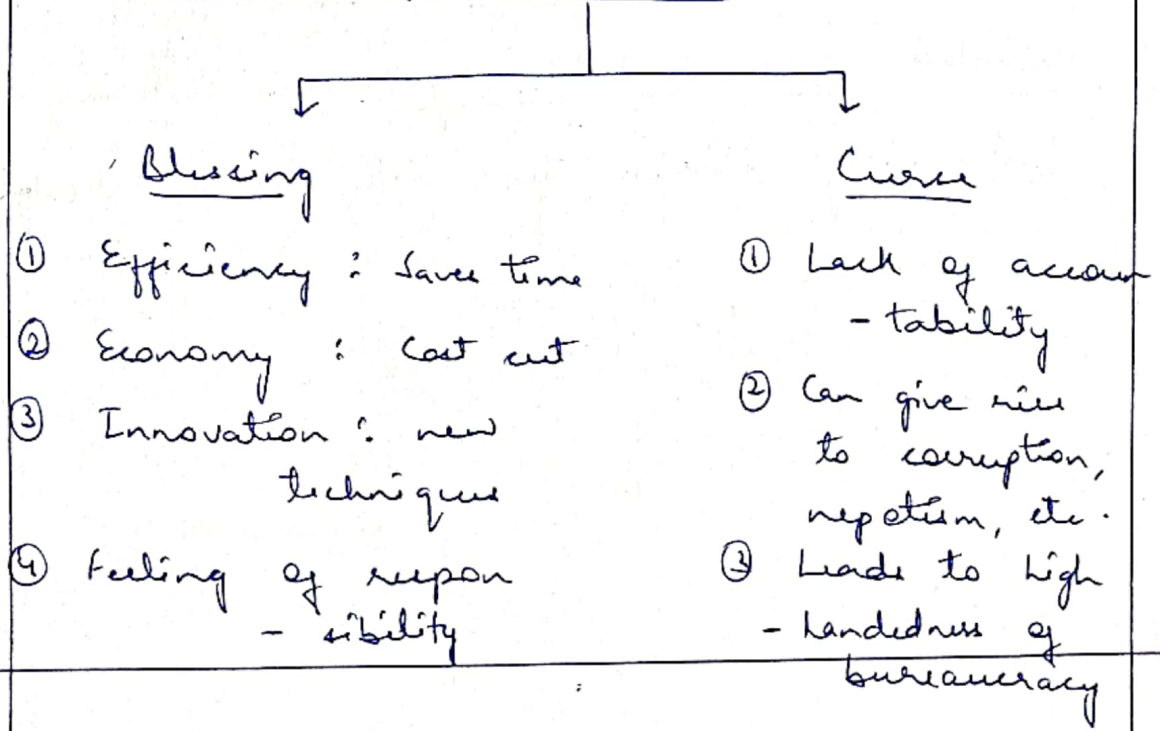 Blessing
① Efficiency : saves time
② Economy : Cost cut
③ Innovation : new
techniques
④ Feeling of respon
- sibility
Curse
① Lack of accoun
- tability
② Can give rise
to corruption,
nepotism, etc.
③ Leads to high
- handedness of
bureaucracy